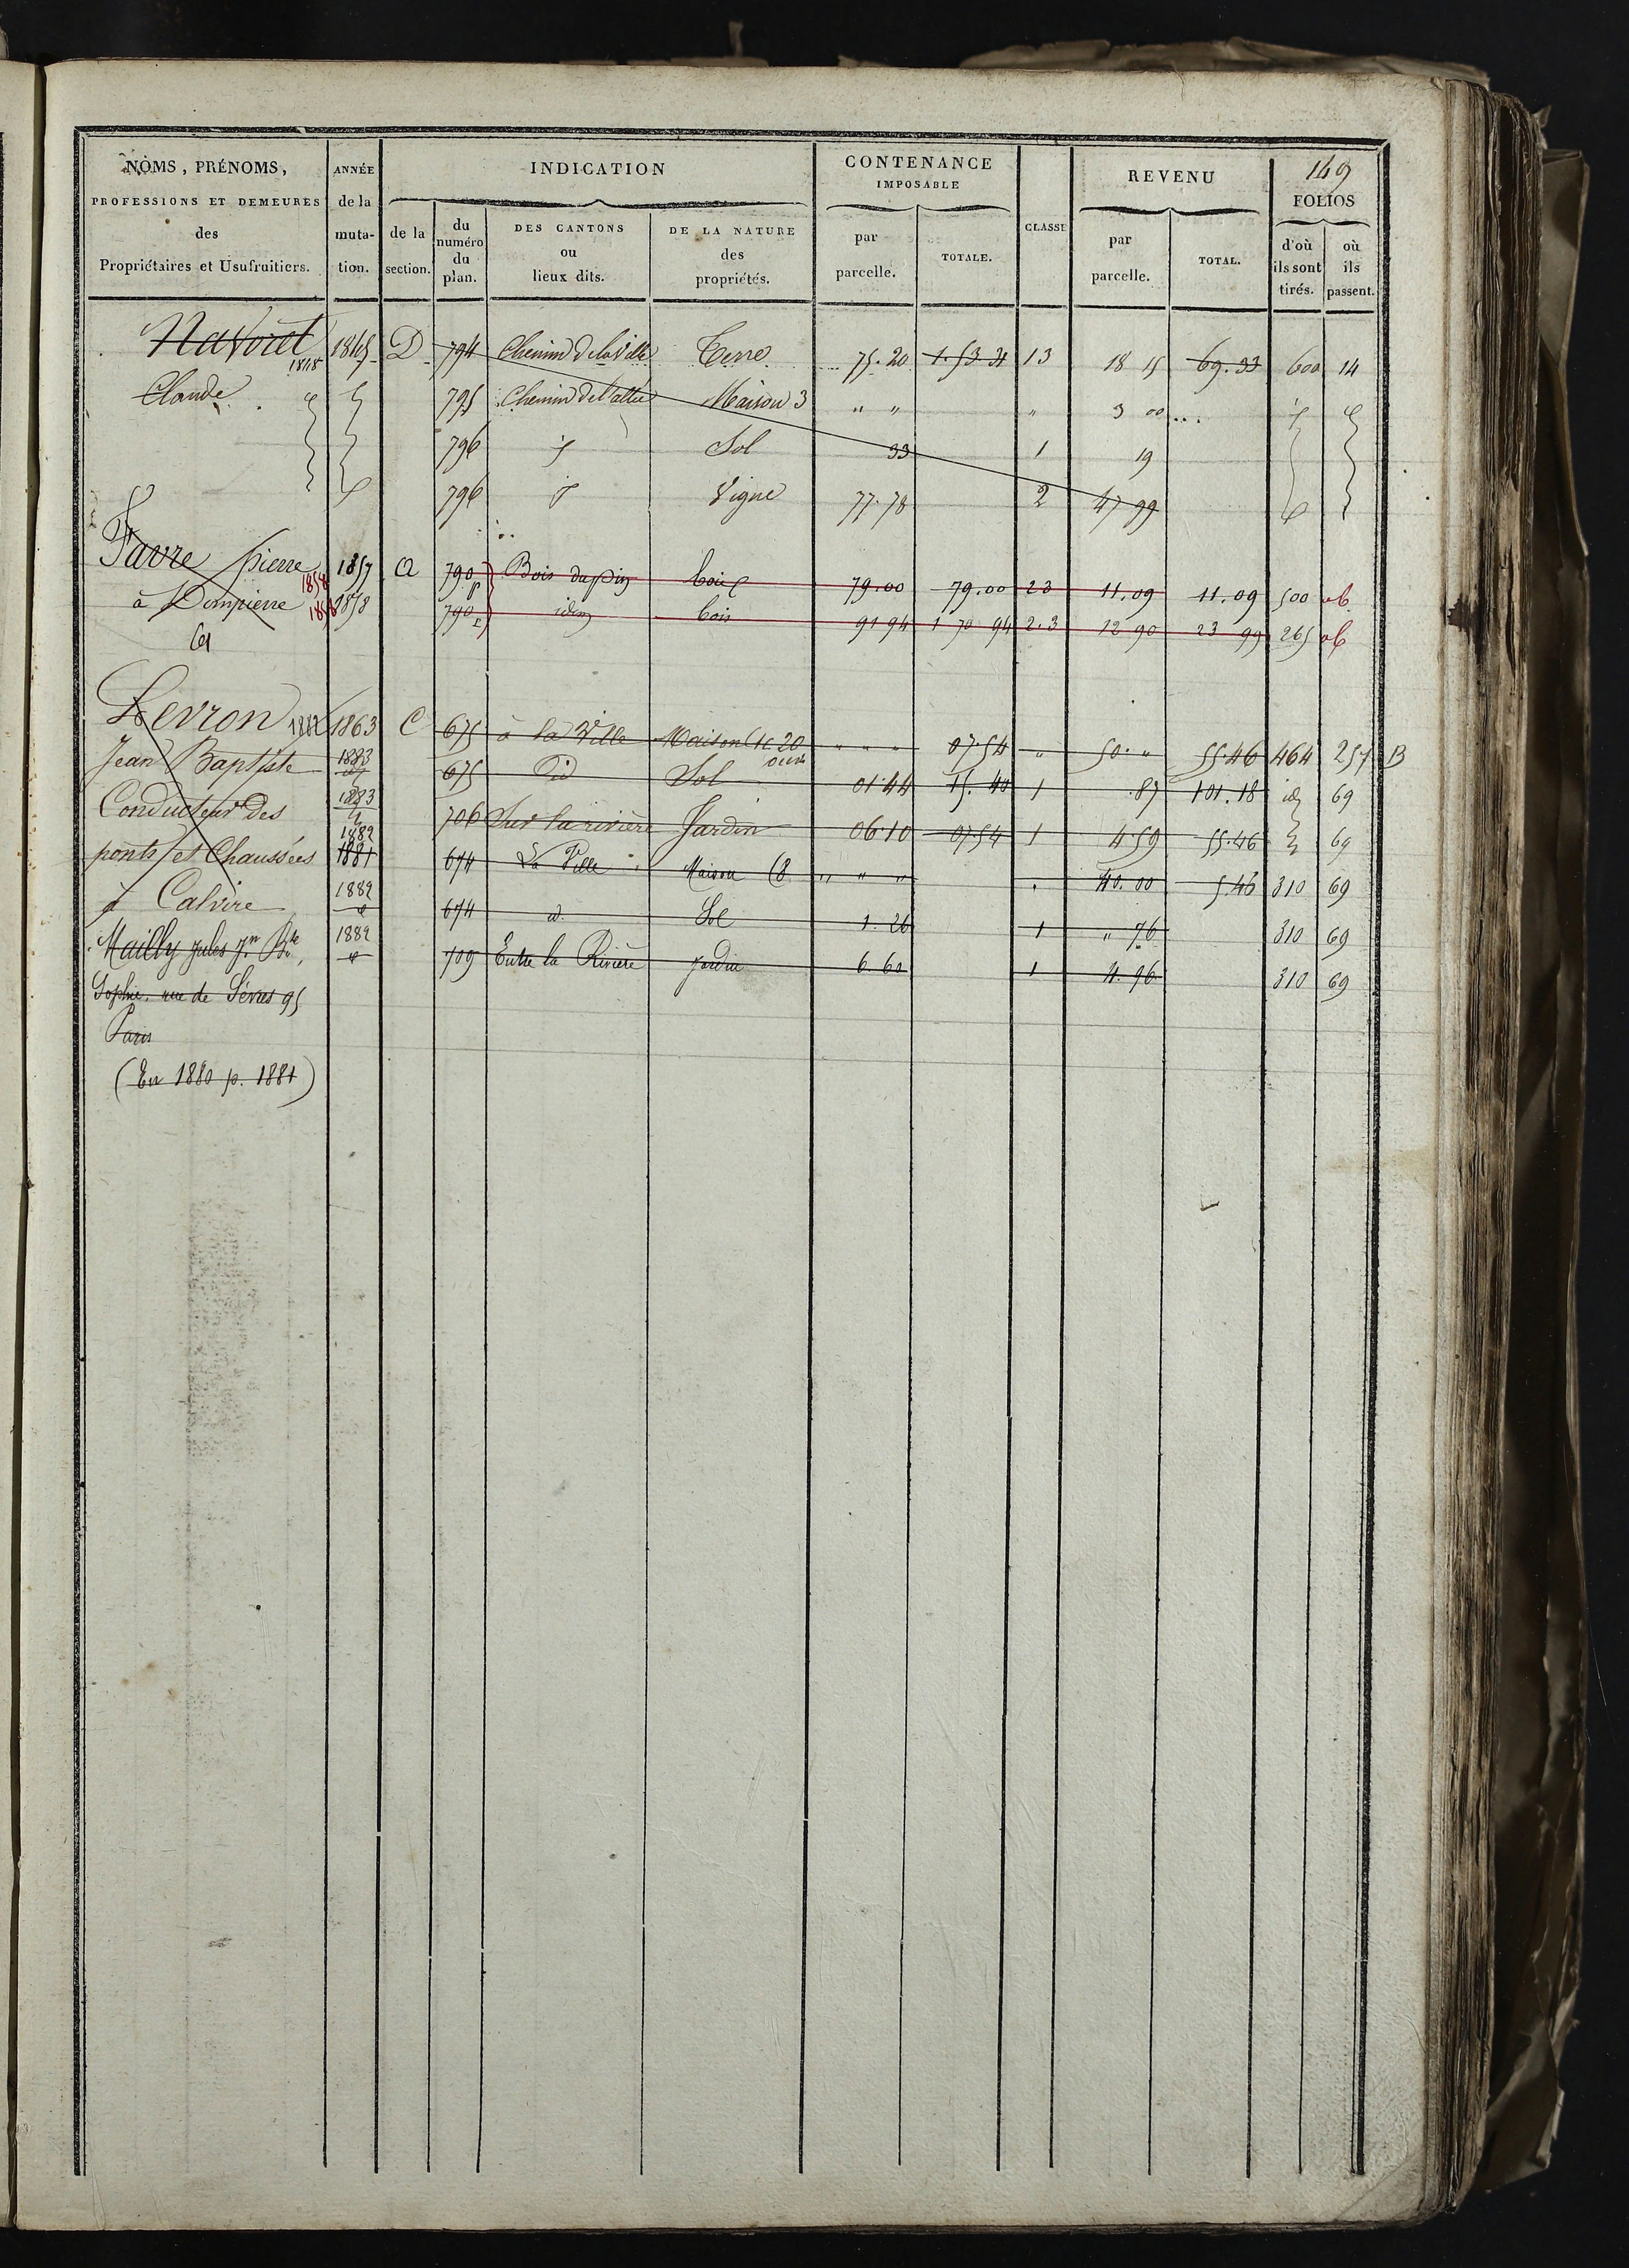 149
NOMS, PRÉNOMS, ANNÉE INDICATION CONTENANCE REVENU
PROFESSIONS ET DEMEURES de la IMPOSABLE FOLIOS
des muta- de la du numéro du plan. DES CANTONS ou lieux dits. DE LA NATURE des propriétés. par parcelle. TOTALE. CLASSE par parcelle. TOTAL. d'où ils sont tirés. où ils passent.
Propriétaires et Usufruitiers. tion. section.
1845 D 794 Chemin de la Ville Terre 75.20 1.53 31 13 18 15 69.33 600 14
Claude 795 Chemin de Maison 3 " " " 3 00
796 Sol 33 1 19
796 Vigne 77.78 2 47 99
Favre pierre 1858 1857 a 790 p Bois du pin bois 79.00 79.00 23 11.09 11.09 500 ab
à Dompierre 1858 1858 790 idem bois 91 94 1 70 94 2.3 12 90 23 99 265 ab
Levron 1882 1863 C 675 à la Ville Maison 20 ouv " " " 07.54 " 50. " 55.46 464 257 B
Jean Baptiste 1883 675 id Sol 01.44 15.40 1 .87 101.18 id 69
Conducteur des 1883 706 Sur la rivière Jardin 06.10 07.54 1 4.59 55.46 69
ponts et Chaussées 1882 1881 674 La Ville Maison (8 " " " 40.00 5.46 310 69
à Caluire 1882 674 d. Sol 1.26 1 " 76 310 69
Mailly Jules Jn Bte, 1882 709 Entre la Rivière jardin 6.60 1 4.96 310 69
Sophie. rue de Sèvres 95
Paris
(En 1880 p. 1881)